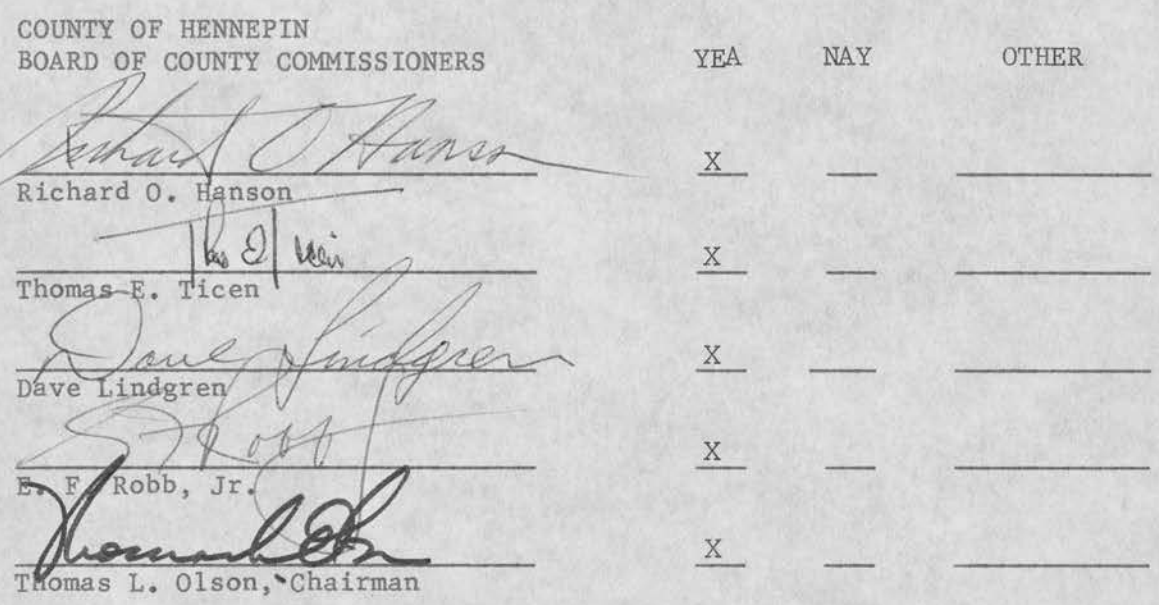 COUNTY OF HENNEPIN
BOARD OF COUNTY COMMISSIONERS YEA NAY OTHER
Richard O Hanson X
Richard O. Hanson
Thos E Ticen X
Thomas E. Ticen
Dave Lindgren X
Dave Lindgren
E F Robb X
E. F. Robb, Jr.
Thomas L Olson X
Thomas L. Olson, Chairman